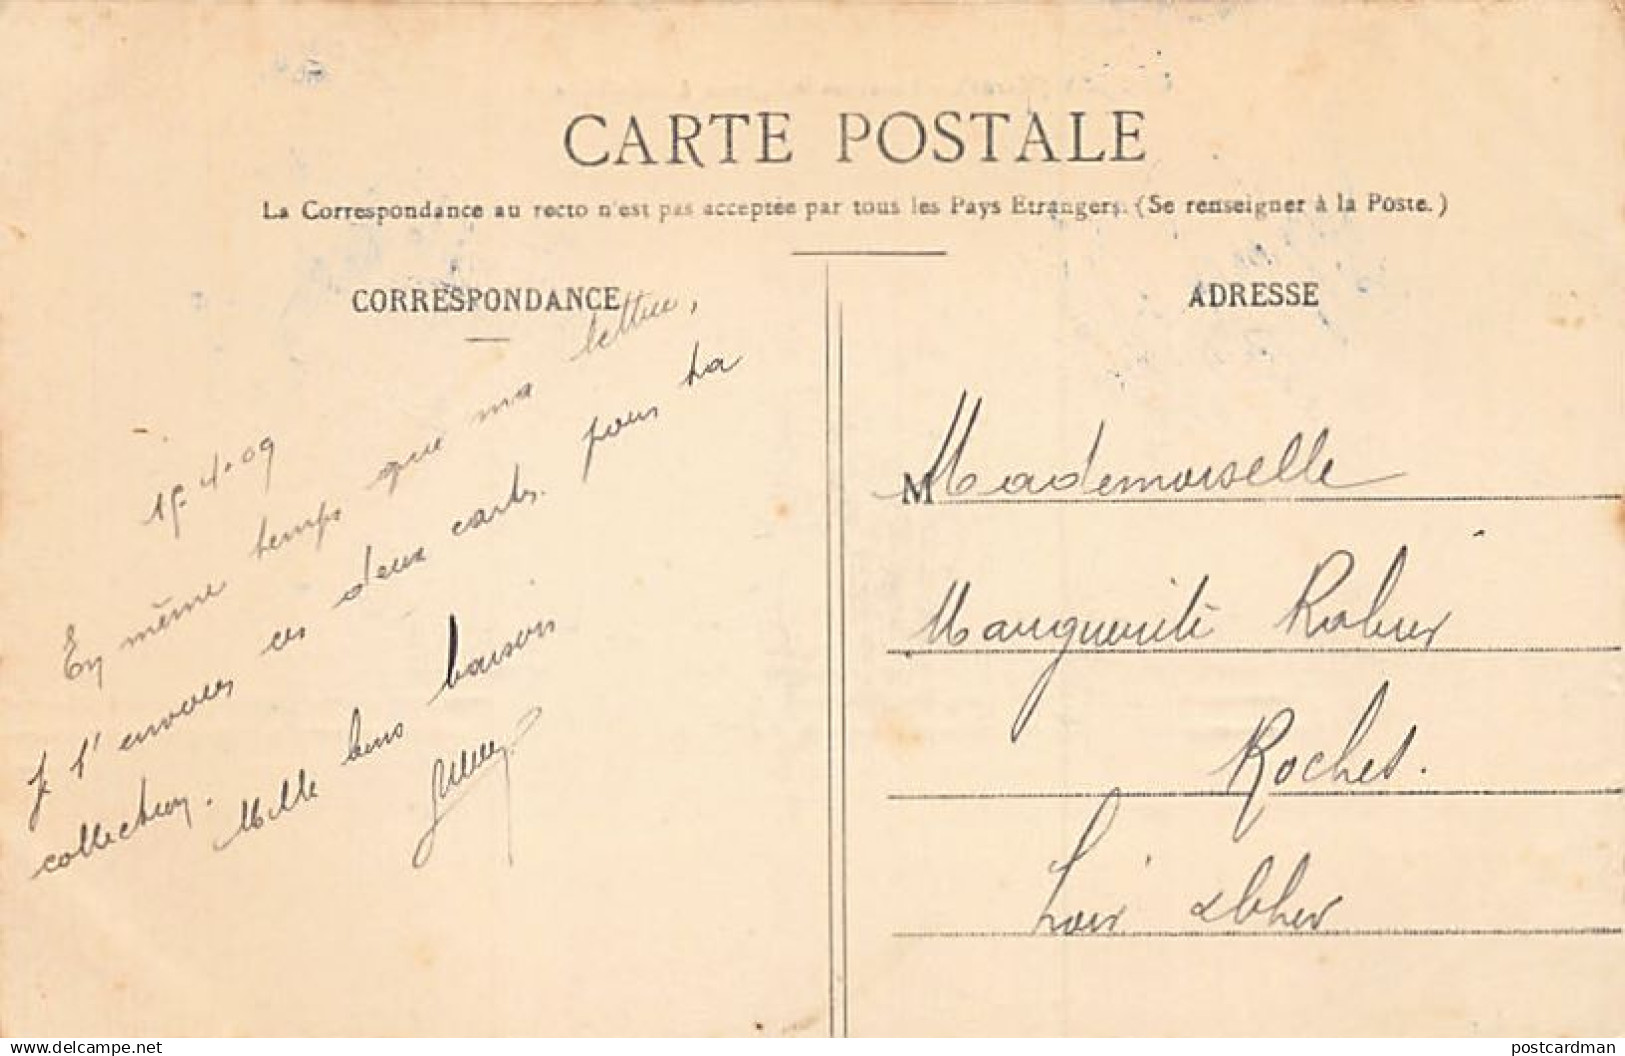 CARTE POSTALE
La Correspondance au recto n'est pas acceptée par tous les Pays Etrangers. (Se renseigner à la Poste.)
CORRESPONDANCE
4-09
En même temps que ma lettre,
Je t'envoies ces deux cartes pour ta
collection.
Mille bons baisers
ADRESSE
M
Mademoiselle
Marguerite
Roches.
Loir &
www.delcampe.net
postcardman